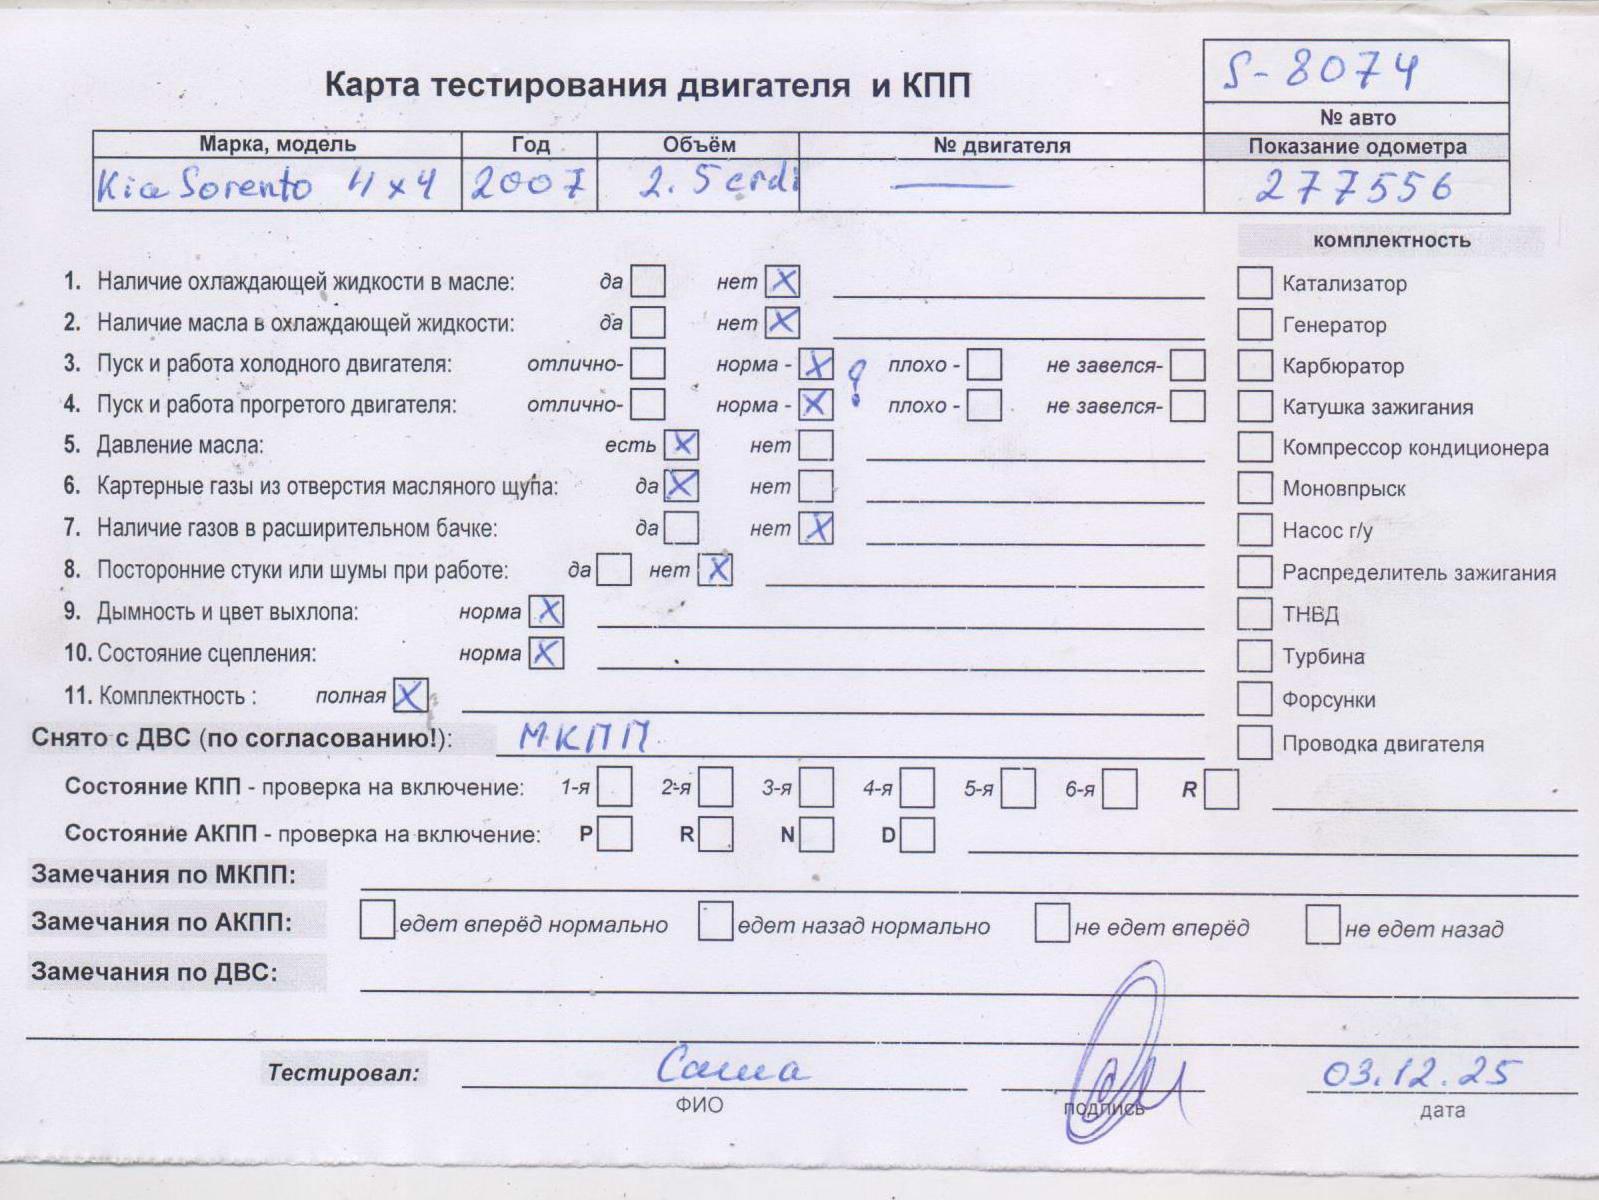 S-8074
Карта тестирования двигателя и КПП
№ авто
Марка, модель Год Объём № двигателя Показание одометра
Kia Sorento 4x4 2007 2.5 crdi — 277556
комплектность
1. Наличие охлаждающей жидкости в масле: да нет X Катализатор
2. Наличие масла в охлаждающей жидкости: да нет X Генератор
3. Пуск и работа холодного двигателя: отлично- норма - X плохо - не завелся- Карбюратор
4. Пуск и работа прогретого двигателя: отлично- норма - X плохо - не завелся- Катушка зажигания
5. Давление масла: есть X нет Компрессор кондиционера
6. Картерные газы из отверстия масляного щупа: да X нет Моновпрыск
7. Наличие газов в расширительном бачке: да нет X Насос г/у
8. Посторонние стуки или шумы при работе: да нет X Распределитель зажигания
9. Дымность и цвет выхлопа: норма X ТНВД
10. Состояние сцепления: норма X Турбина
11. Комплектность : полная X Форсунки
Снято с ДВС (по согласованию!): МКПП Проводка двигателя
Состояние КПП - проверка на включение: 1-я 2-я 3-я 4-я 5-я 6-я R
Состояние АКПП - проверка на включение: P R N D
Замечания по МКПП:
Замечания по АКПП: едет вперёд нормально едет назад нормально не едет вперёд не едет назад
Замечания по ДВС:
Тестировал: Саша 03.12.25
ФИО подпись дата